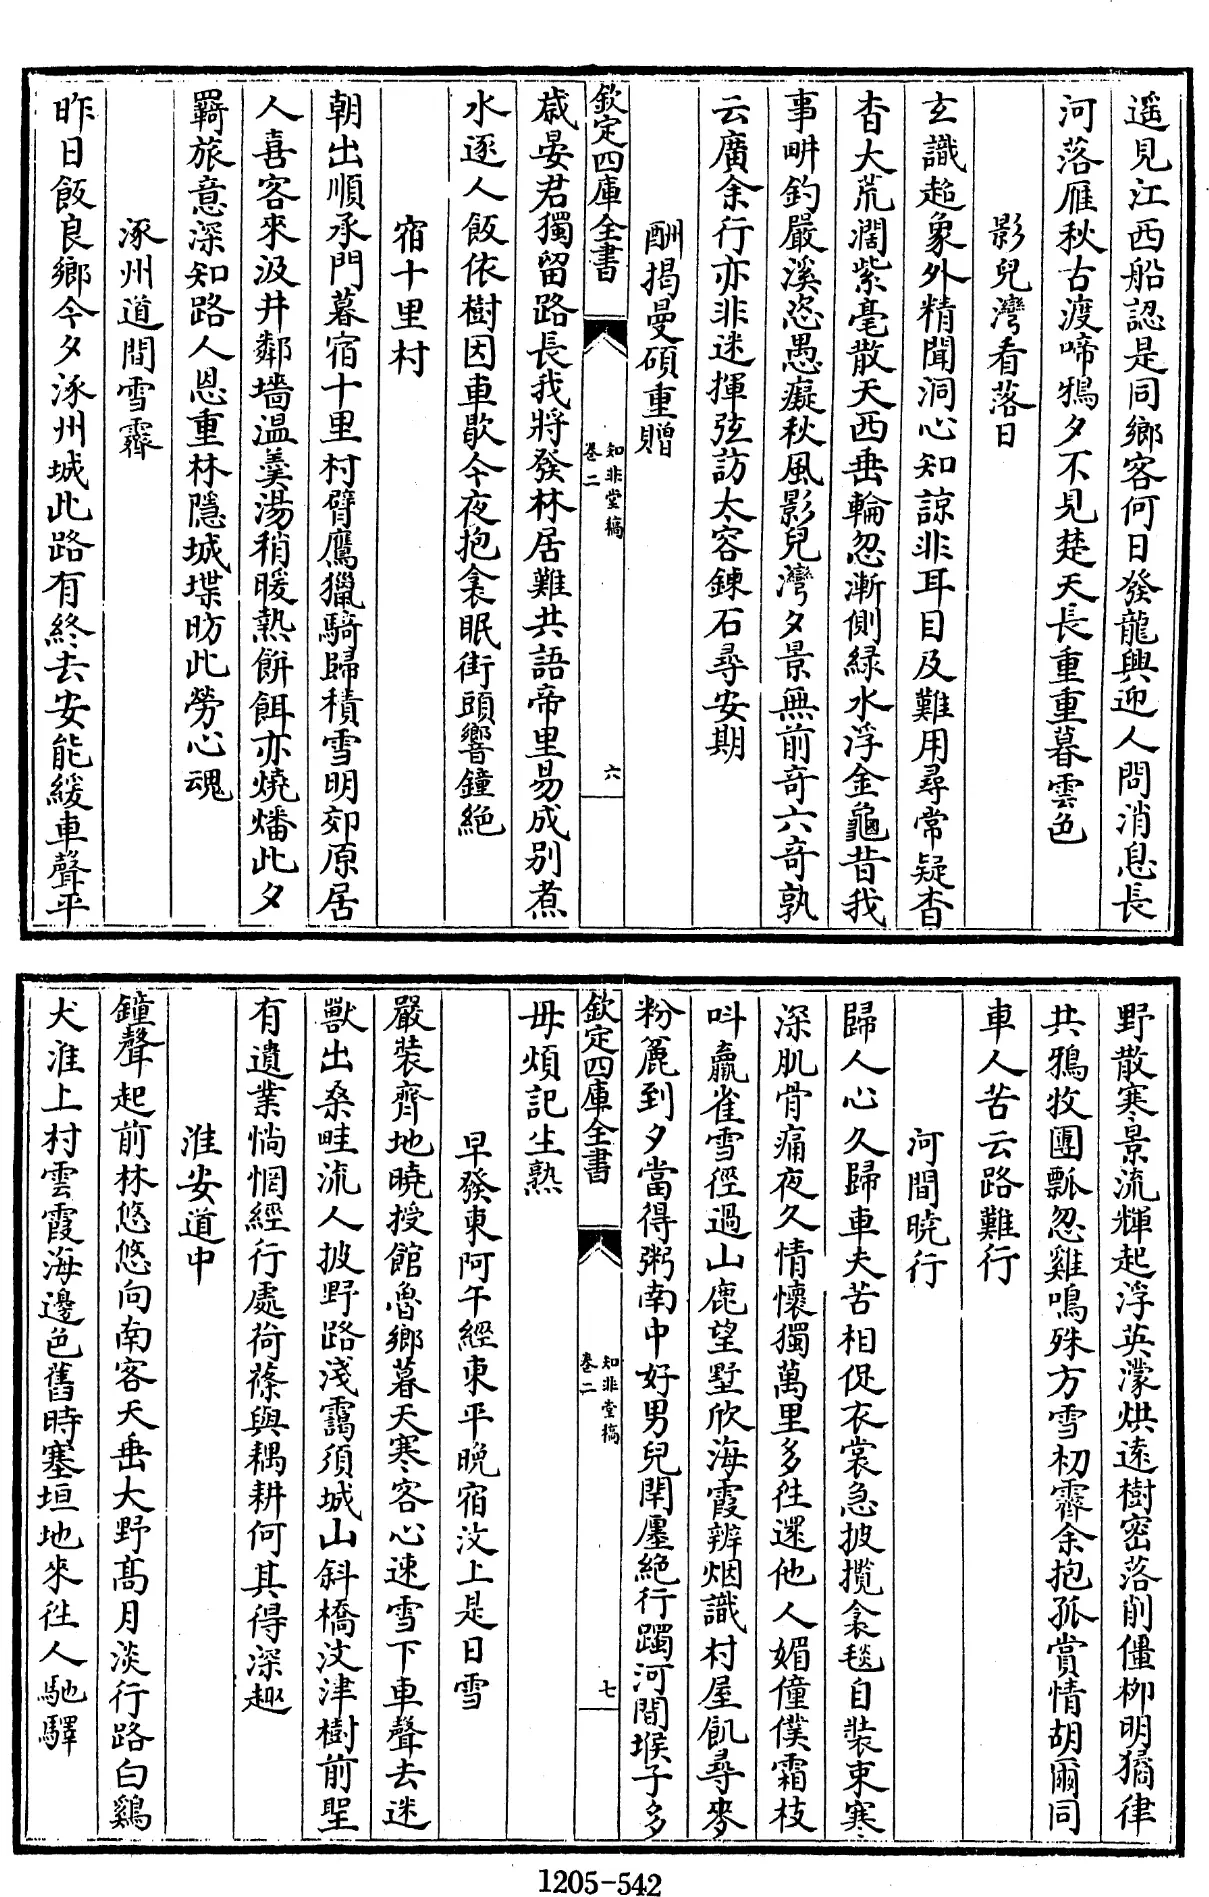 遥見江西船認是同鄉客何日發龍興迎人問消息長
河落雁秋古渡啼鴉夕不見楚天長重重暮雲色
影兒灣看落日
玄識超象外精聞洞心知諒非耳目及難用尋常疑杳
杳大荒濶紫毫散天西垂輪忽漸側緑水浮金龜昔我
事畊釣嚴溪恣愚癡秋風影兒灣夕景無前竒六竒孰
云廣余行亦非迷揮弦訪太容鍊石尋安期
酬揭曼碩重贈
欽定四庫全書
知非堂稿
卷二
六
歳晏君獨留路長我將發林居難共語帝里易成别煮
水逐人飯依樹因車歇今夜抱衾眠街頭響鐘絶
宿十里村
朝出順承門暮宿十里村臂鷹獵騎歸積雪明郊原居
人喜客來汲井鄰墻温羹湯稍暖熱餅餌亦燒燔此夕
羇旅意深知路人恩重林隱城堞昉此勞心魂
涿州道間雪霽
昨日飯良鄉今夕涿州城此路有終去安能緩車聲平
野散寒景流輝起浮英濛烘逺樹密落削僵柳明獝律
共鴉牧團瓢忽雞鳴殊方雪初霽余抱孤賞情胡爾同
車人苦云路難行
河間曉行
歸人心久歸車夫苦相促衣裳急披攬衾毯自裝束寒
深肌骨痛夜久情懷獨萬里多徃還他人媚僮僕霜枝
呌羸雀雪徑過山鹿望墅欣海霞辨烟識村屋飢尋麥
粉麄到夕當得粥南中好男兒閈㕓絶行躅河間堠子多
欽定四庫全書
知非堂稿
卷二
七
毋煩記生熟
早發東阿午經東平晚宿汶上是日雪
嚴裝齊地曉授館魯鄉暮天寒客心速雪下車聲去迷
獸出桑畦流人披野路淺靄須城山斜橋汶津樹前聖
有遺業惝惘經行處荷蓧與耦耕何其得深趣
淮安道中
鐘聲起前林悠悠向南客天垂大野髙月淡行路白鷄
犬淮上村雲霞海邊色舊時塞垣地來徃人馳驛
1205-542